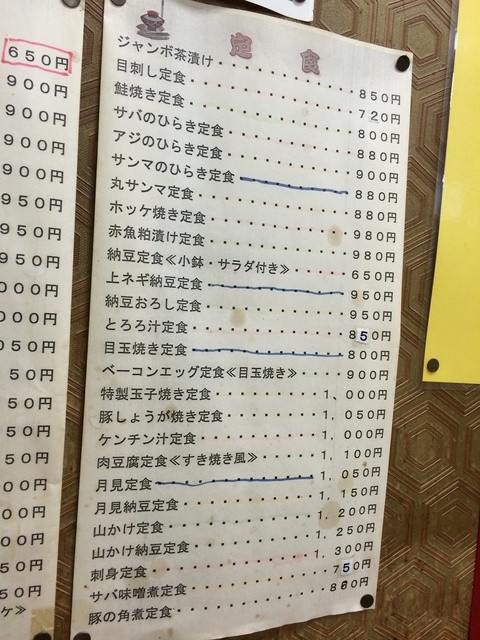 650円
900円
900円
900円
900円
950円
950円
950円
000円
000円
050円
50円
50円
50円
50円
50円
00円
00円
50円
50円
ケ≫
定食
ジャンボ茶漬け・・・・・・・・850円
目刺し定食・・・・・・・・720円
鮭焼き定食・・・・・・・・800円
サバのひらき定食・・・・・・・・880円
アジのひらき定食・・・・・・・・900円
サンマのひらき定食・・・・・・・・880円
丸サンマ定食・・・・・・・・880円
ホッケ焼き定食・・・・・・・・980円
赤魚粕漬け定食・・・・・・・・980円
納豆定食≪小鉢・サラダ付き≫・・・・650円
上ネギ納豆定食・・・・・・・・950円
納豆おろし定食・・・・・・・・950円
とろろ汁定食・・・・・・・・850円
目玉焼き定食・・・・・・・・800円
ベーコンエッグ定食≪目玉焼き≫・・・・900円
特製玉子焼き定食・・・・・・・・1、000円
豚しょうが焼き定食・・・・・・・・1、050円
ケンチン汁定食・・・・・・・・1、000円
肉豆腐定食≪すき焼き風≫・・・・1、100円
月見定食・・・・・・・・1、050円
月見納豆定食・・・・・・・・1、150円
山かけ定食・・・・・・・・1、200円
山かけ納豆定食・・・・・・・・1、250円
刺身定食・・・・・・・・1、300円
サバ味噌煮定食・・・・・・・・750円
豚の角煮定食・・・・・・・・